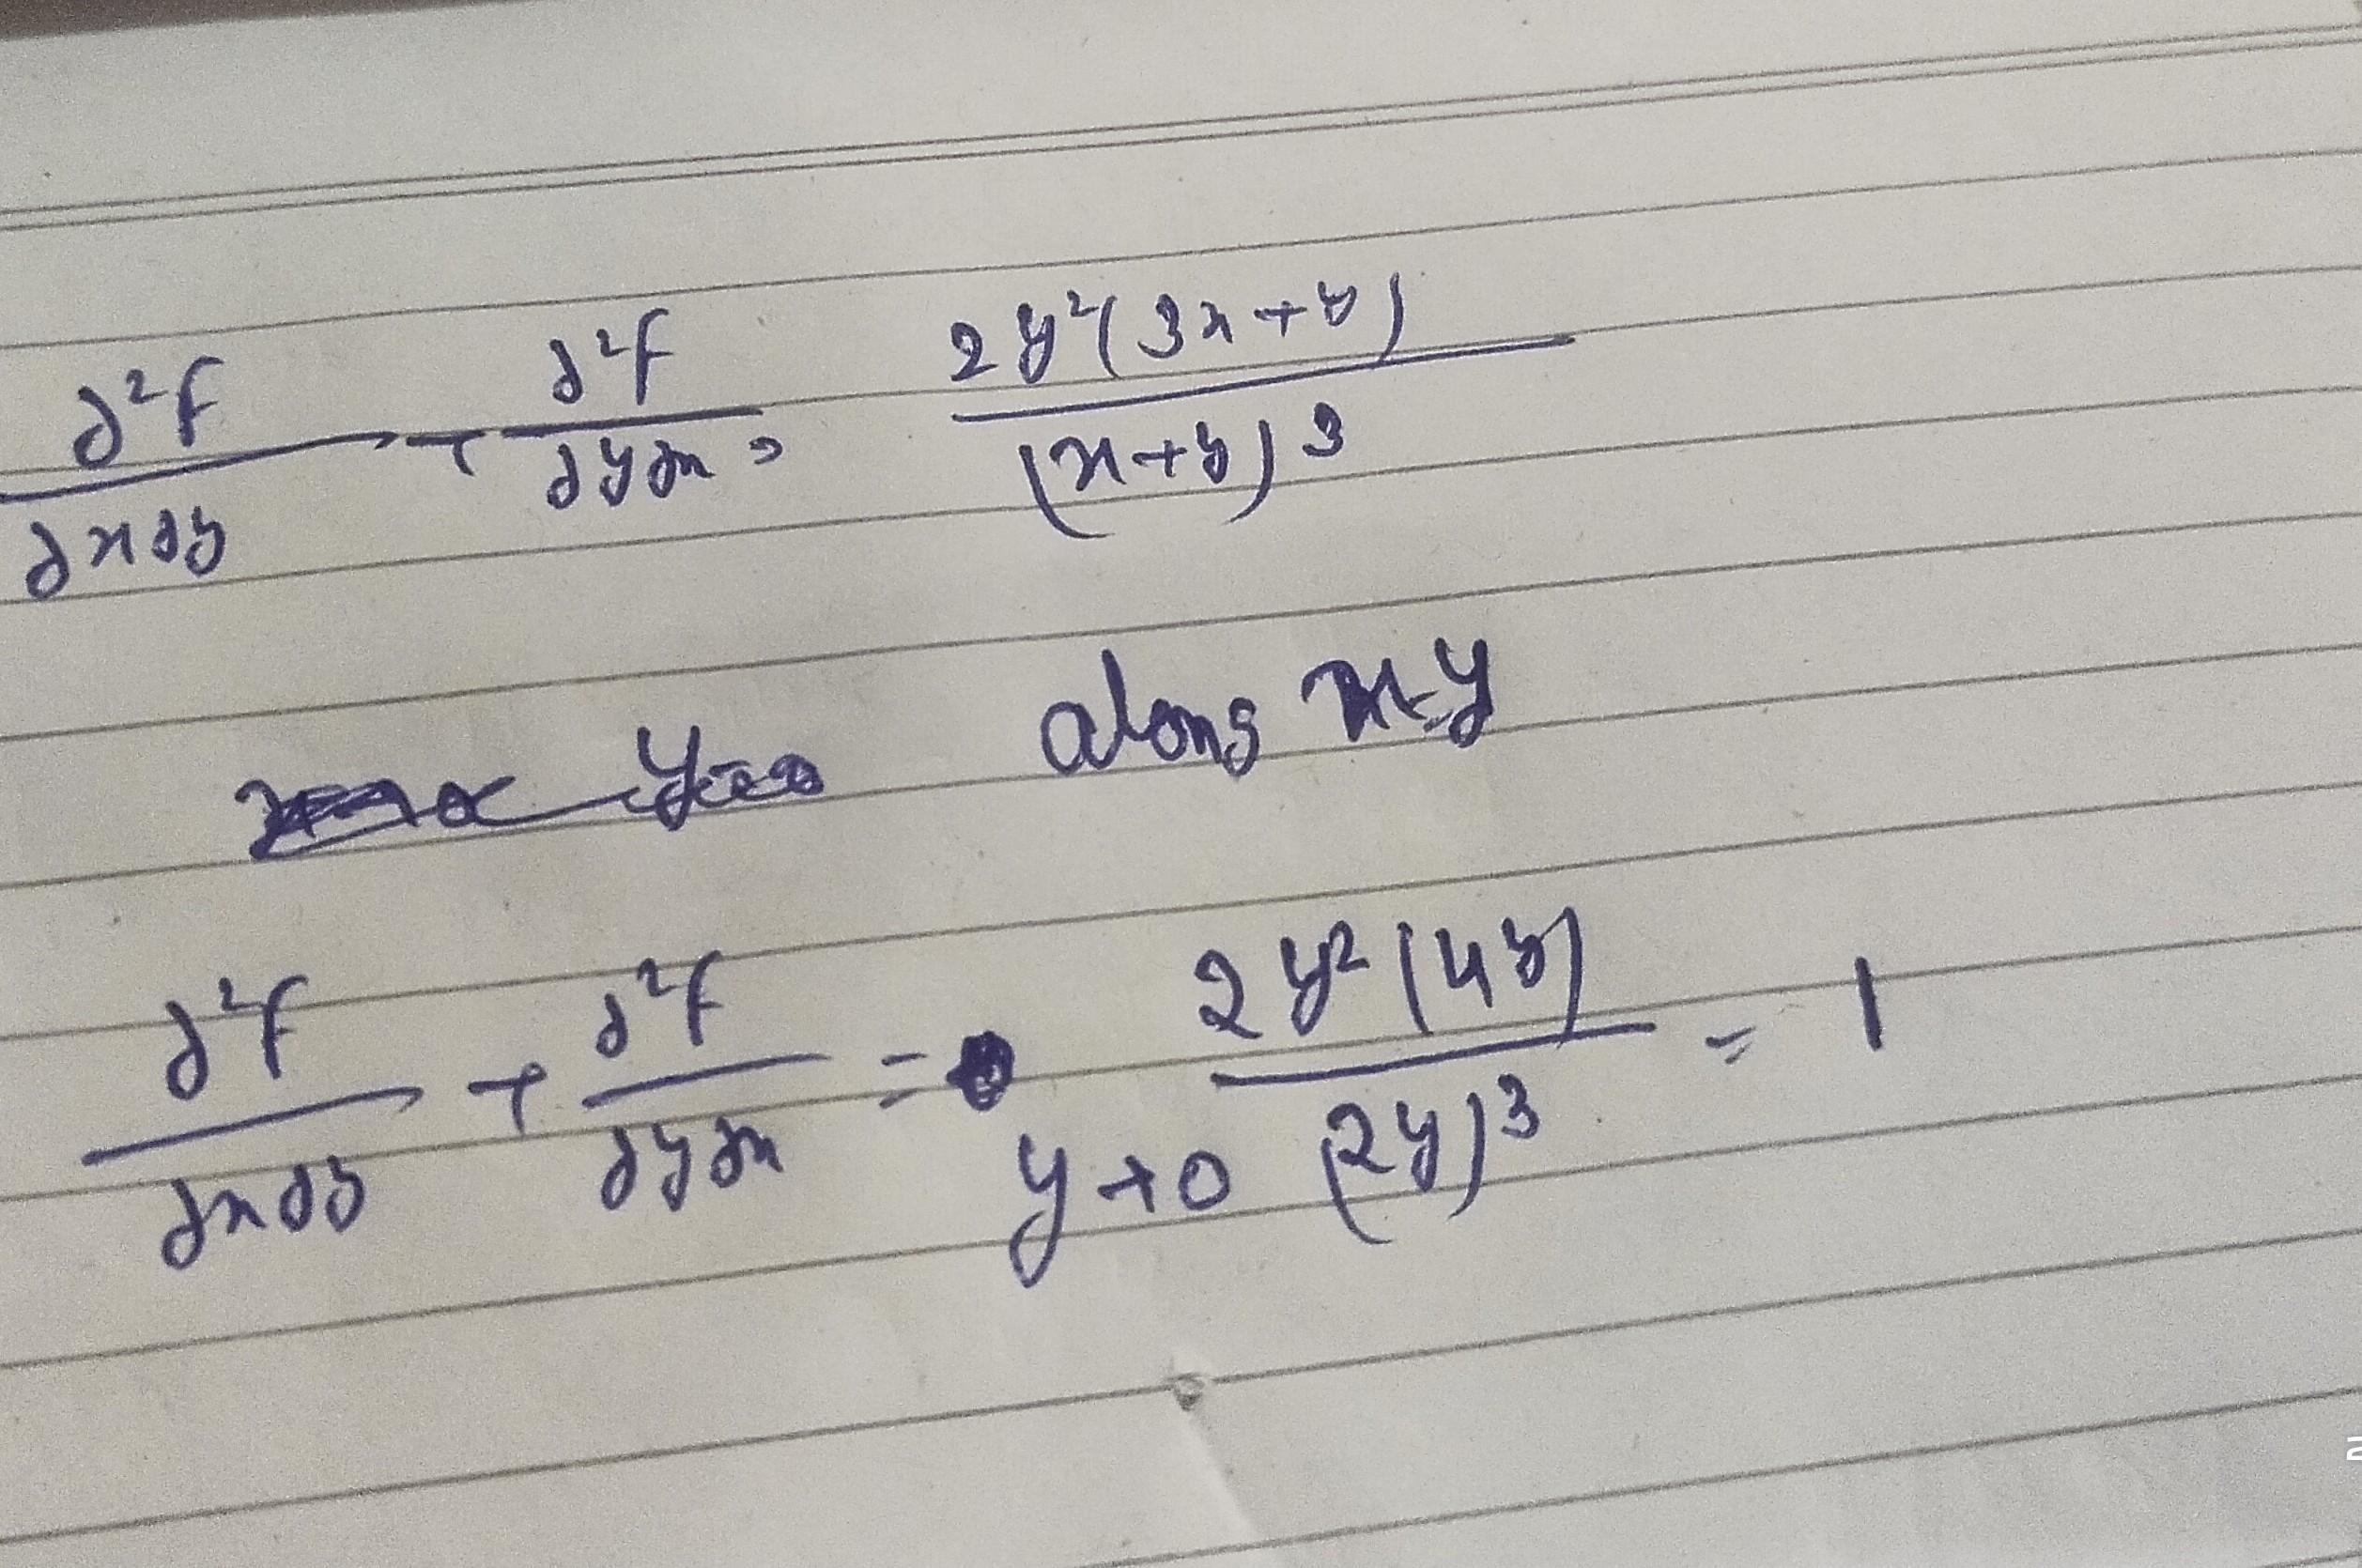 ∂²f/∂x∂y + ∂²f/∂y∂x = 2y²(3x+y)/(x+y)³
along x=y
∂²f/∂x∂y + ∂²f/∂y∂x = y→0 2y²(4y)/(2y)³ = 1